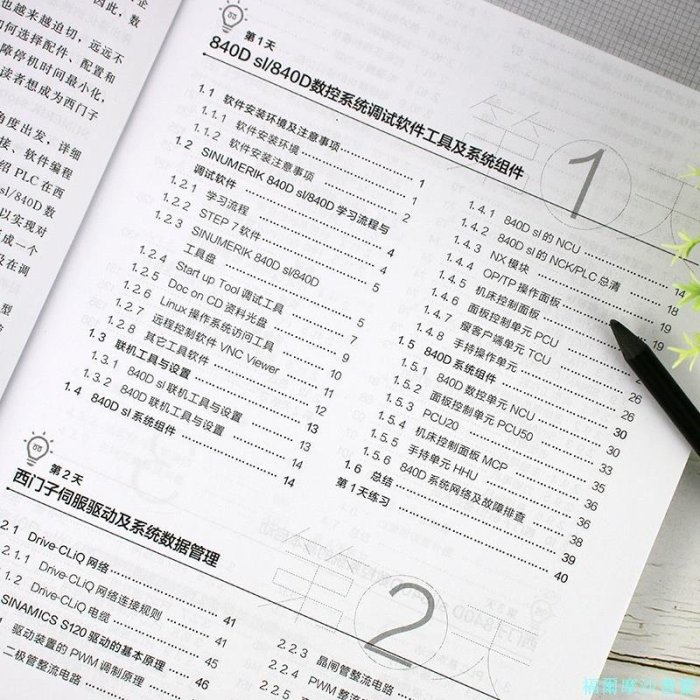 也越来越迫切，远远不
如何选择配件、配置和
障停机时间最小化，
读者想成为西门子
角度出发，详细
接、软件编程
绍 PLC 在西
sl/840D 数
以实现对
成一个
及在调
第1天
840D sl/840D数控系统调试软件工具及系统组件
1.1 软件安装环境及注意事项 1
1.1.1 软件安装环境 1
1.1.2 软件安装注意事项 2
1.2 SINUMERIK 840D sl/840D 学习流程与
调试软件 4
1.2.1 学习流程 4
1.2.2 STEP 7 软件 4
1.2.3 SINUMERIK 840D sl/840D
工具盘 5
1.2.4 Start up Tool 调试工具 5
1.2.5 Doc on CD 资料光盘 7
1.2.6 Linux 操作系统访问工具 9
1.2.7 远程控制软件 VNC Viewer 10
1.2.8 其它工具软件 11
1.3 联机工具与设置 12
1.3.1 840D sl 联机工具与设置 13
1.3.2 840D 联机工具与设置 13
1.4 840D sl 系统组件 14
1.4.1 840D sl 的 NCU 14
1.4.2 840D sl 的 NCK/PLC 总清 18
1.4.3 NX 模块 19
1.4.4 OP/TP 操作面板 19
1.4.5 机床控制面板
1.4.6 面板控制单元 PCU
1.4.7 瘦客户端单元 TCU
1.4.8 手持操作单元 26
1.5 840D 系统组件 26
1.5.1 840D 数控单元 NCU 30
1.5.2 面板控制单元 PCU50 30
1.5.3 PCU20 33
1.5.4 机床控制面板 MCP 35
1.5.5 手持单元 HHU 36
1.5.6 840D 系统网络及故障排查 36
1.6 总结 38
第1天练习 39
40
第1天
第2天
西门子伺服驱动及系统数据管理
2.1 Drive-CLiQ 网络 41
2.1.1 Drive-CLiQ 网络连接规则 41
1.2 Drive-CLiQ 电缆 44
SINAMICS S120 驱动的基本原理 45
驱动装置的 PWM 调制原理 45
二极管整流电路
2.2.3 晶闸管整流电路
2.2.4 PWM 整流
第2天